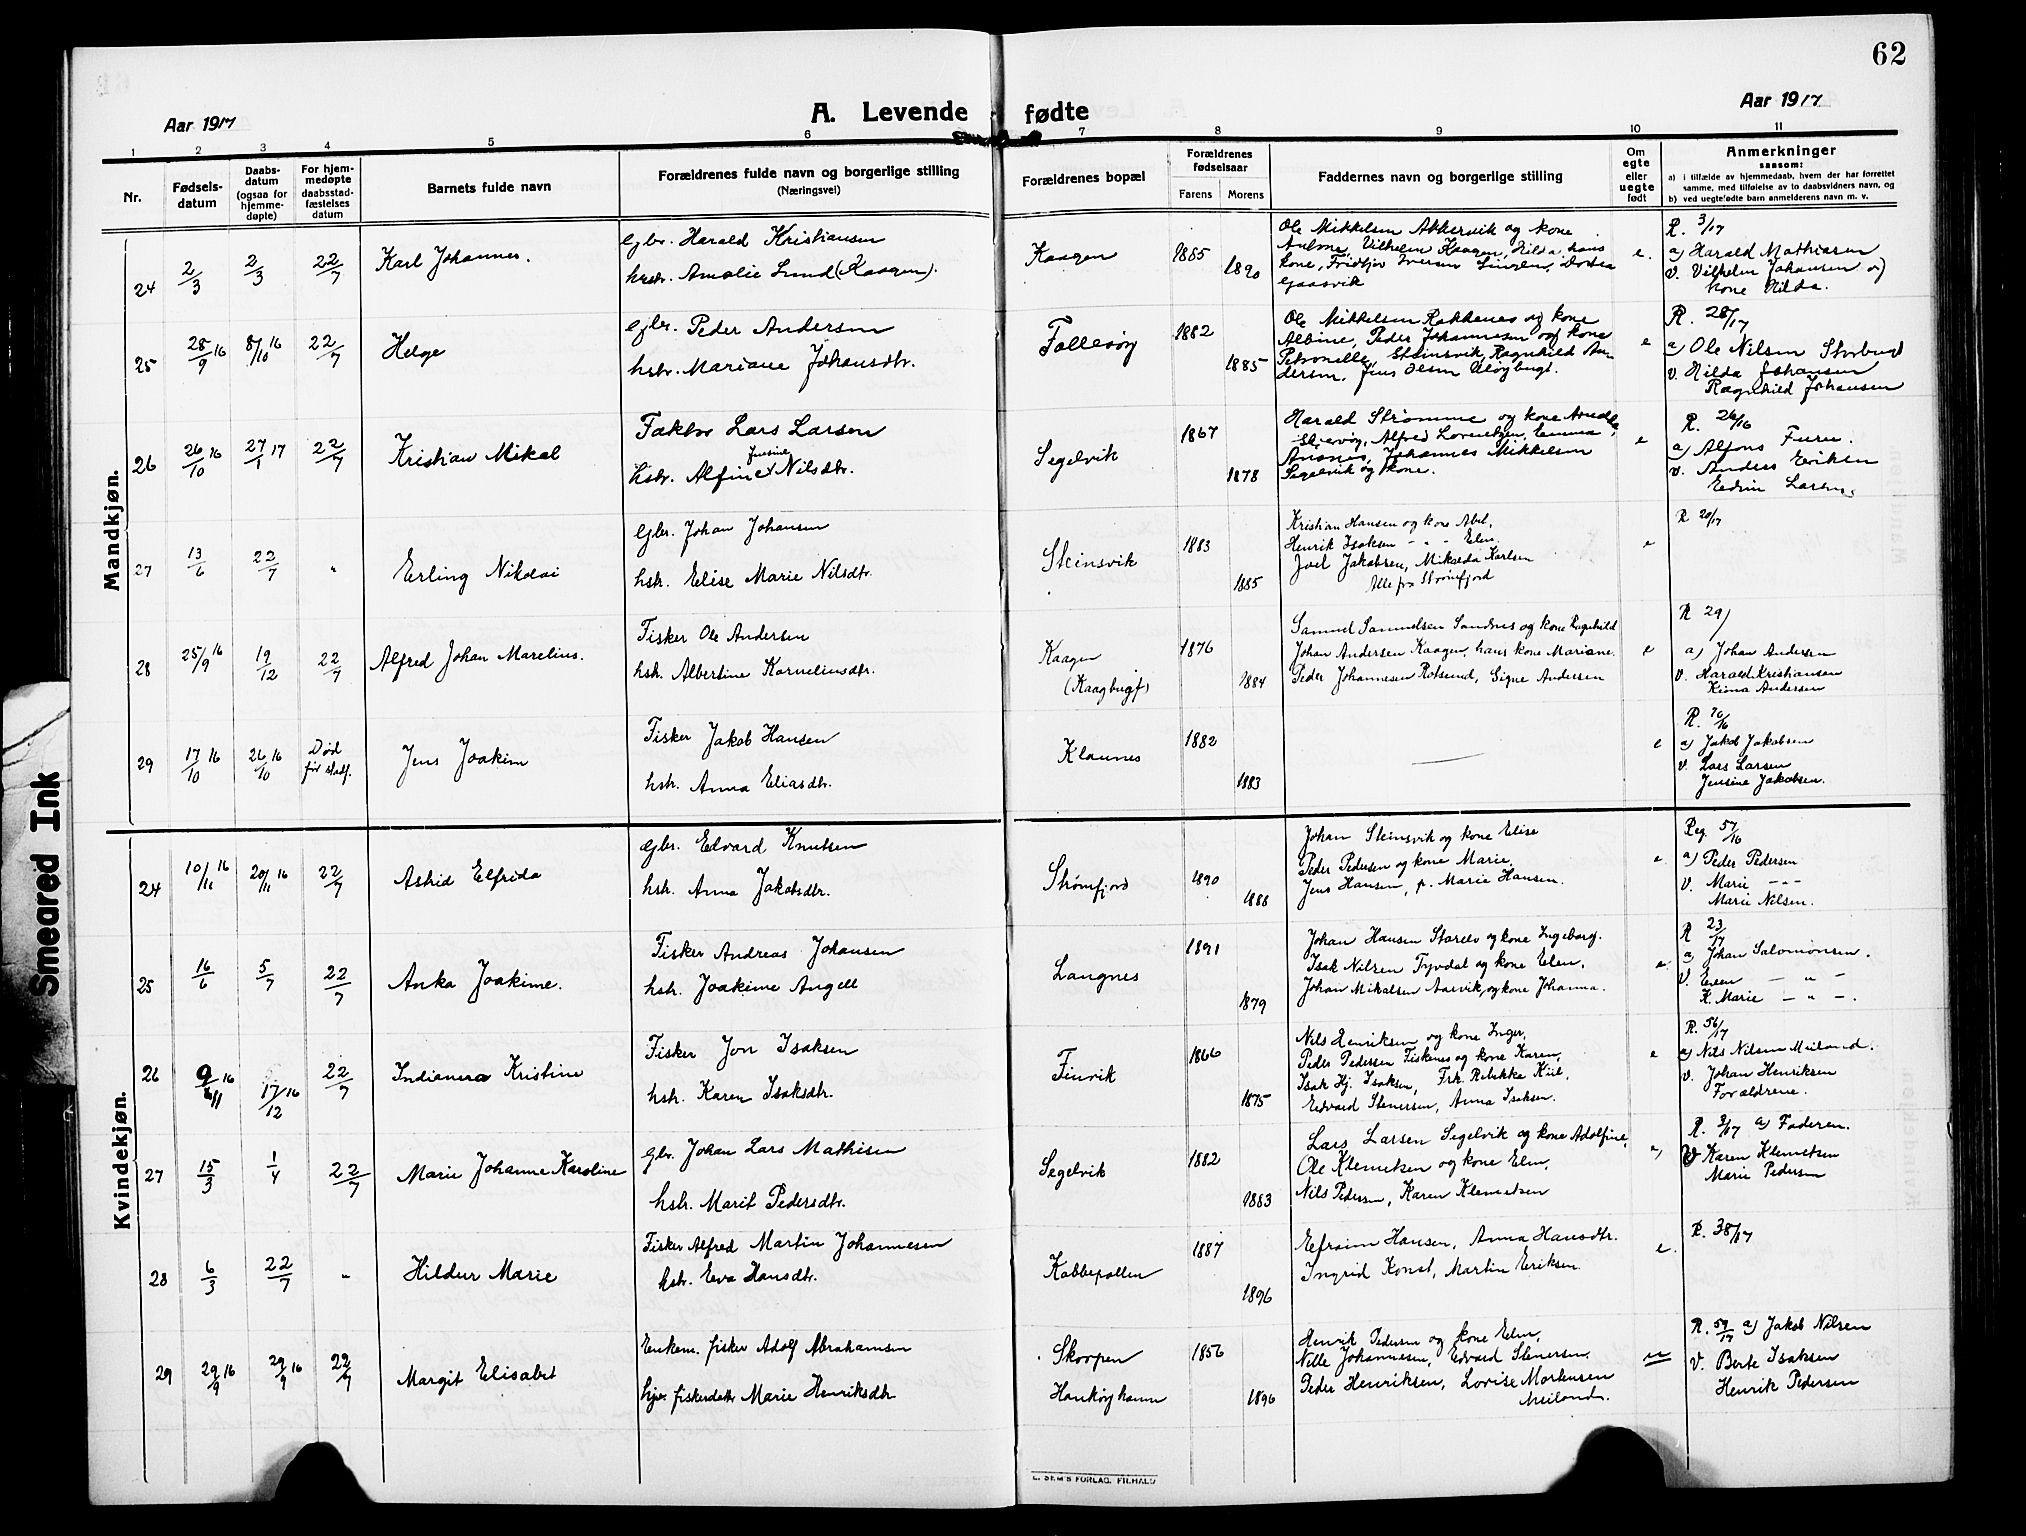 62
Aar 1917
A. Levende fødte
Aar 1917
1 2 3 4 5 6 7 8 9 10 11
Nr.
Fødsels-
datum
Daabs-
datum
(ogsaa for
hjemme-
døpte)
For hjem-
medøpte
daabsstad-
fæstelses
datum
Barnets fulde navn
Forældrenes fulde navn og borgerlige stilling
(Næringsvei)
Forældrenes bopæl
Forældrenes
fødselsaar
Farens Morens
Faddernes navn og borgerlige stilling
Om
egte
eller
uegte
født
Anmerkninger
saasom:
a) i tilfælde av hjemmedaab, hvem der har forrettet
samme, med tilføielse av to daabsvidners navn, og
b) ved uegtefødte barn anmelderens navn m. v.
Mandkjøn.
24 2/3 2/3 22/7 Karl Johannes.
Gbr. Harald Kristiansen
hstr. Amalie Lund (Kaagen).
Kaagen 1885 1890
Ole Mikkelsen Akkervik og kone
Vilhelm Kaagen, Hilda, hans
kone, Fridtjov Iversen
Gaasvik
e.
R. 3/17
a) Harald Mathiasen
v. Vilhelm Johansen og
kone Hilda.
25 28/9 16 8/10 16 22/7 Helge
Gbr. Peder Andersen
hstr. Mariane Johansdtr.
Follesøy 1882 1885
Ole Mikkelsen Rakkenes og kone
Albine, Peder Johannesen og kone
Petronelle, Steinsvik, Ragnhild An-
dersen, Jens Olsen
e
R. 28/17
a) Ole Nilsen
v. Hilda Johansen
Ragnhild Johansen
26 26/10 16 27/1 17 22/7 Kristian Mikal
Lars Larsen
hstr. Alfine Nilsdtr.
Segelvik 1867 1878
Harald Strømme og kone
Alfred Lorentzen, Emma
Johannes Mikkelsen
Segelvik og kone.
e
R. 26/16
a) Alfons Furu.
v. Anders Eriksen
Edvin Larsen.
27 13/6 22/7 " Erling Nikolai
Gbr. Johan Johansen
hstr. Elise Marie Nilsdtr.
Steinsvik 1883 1885
Kristian Hansen og kone Abel,
Henrik Isaksen - " - Elen.
Joel Jakobsen, Mikalda Karlsen
Alle fra Strømfjord
e
R 20/17
28 25/9 16 19/12 22/7 Alfred Johan Marelius.
Fisker Ole Andersen
hstr. Albertine Korneliusdtr.
Kaagen
(Kaagbugt) 1876 1884
Samuel Samuelsen Sandnes og kone Ragnhild
Johan Andersen Kaagen, hans kone Mariane.
Peder Johannesen Rotsund, Signe Andersen
e
R 29/
a) Johan Andersen
v. Harald Kristiansen
Andersen
29 17/10 16 26/10 16 Død
før stadf. Jens Joakim
Fisker Jakob Hansen
hstr. Anna Eliasdtr.
Klaunes 1882 1883
—
e
R. 70/16
a) Jakob Jakobsen
v. Lars Larsen
Jensine Jakobsen.
Kvindekjøn.
24 10/11 16 20/11 16 22/7 Astrid Elfrida
gbr. Edvard Knutsen
hstr. Anna Jakobsdtr.
Strømfjord 1890 1888
Johan Steinsvik og kone Elise
Peder Pedersen og kone Marie,
Jens Hansen, p. Marie Hansen.
e.
Reg. 57/16
a) Peder Pedersen
v. Marie - " -
Marie Nilsen.
25 16/6 5/7 22/7 Anka Joakime.
Fisker Andreas Johansen
hstr. Joakime Angell
Langnes 1891 1879
Johan Hansen Storelv og kone Ingeborg.
Isak Nilsen Tyvdal og kone Elen,
Johan Mikalsen Aarvik, og kone Johanna.
e.
R 23/17
a) Johan Salomonsen.
v. Elen - " -
K. Marie - " -.
26 9/11 16 17/12 16 22/7 Indianera Kristine
Fisker Jon Isaksen
hstr. Karen Isaksdtr.
Finvik 1866 1875
Nils Henriksen og kone Inger,
Peder Pedersen Fiskenes og kone Karen,
Isak Hj. Isaksen, Frk. Rebekka Kiil,
Edvard Stenersen, Anna Isaksen.
e
R. 56/17
a) Nils Nilsen Meiland.
v. Johan Henriksen
Forældrene.
27 15/3 1/4 22/7 Marie Johanne Karoline
gbr. Johan Lars Mathisen
hstr. Marit Pedersdtr.
Segelvik 1882 1883
Lars Larsen Segelvik og kone Adolfine,
Ole Klemetsen og kone Elen,
Nils Pedersen, Karen Klemetsen
R. 8/17 a) Faderen.
v. Karen Klemetsen
Marie Pedersen
28 6/3 22/7 " Hildur Marie
Fisker Alfred Martin Johannesen
hstr. Eva Hansdtr.
Kobbepollen 1887 1896
Efraim Hansen, Anna Hansdtr.
Ingrid Konst, Martin Eriksen.
e.
R. 38/17
29 29/9 16 29/9 16 22/7 Margit Elisabet
Enkem. fisker Adolf Abrahamsen
fiskerdatter Marie Henriksdtr
Skorpen
Haukøyhamn 1856 1896
Henrik Pedersen og kone Elen,
Nille Johannesen, Edvard Stenersen.
Peder Henriksen, Lovise Mortensen
Meiland.
u
R. 59/17 a) Jakob Nilsen
v. Berte Isaksen
Henrik Pedersen
E. SEM'S FORLAG. FR.HALD
Smeared Ink